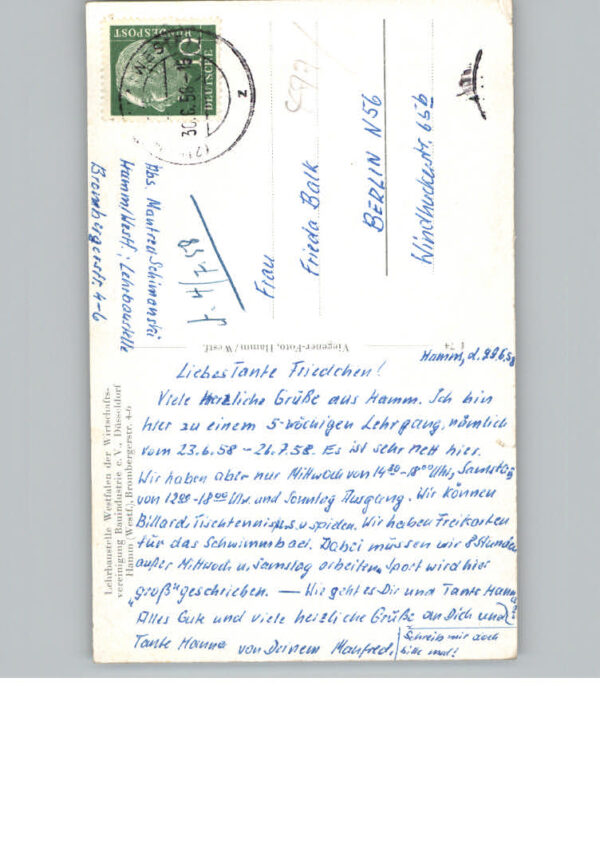 DEUTSCHE
BUNDESPOST
10
30.6.58-18
z
Abs. Manfred Schimanski
Hamm/Westf., Lehrbaustelle
Brombergerstr. 4-6
4/7.58
Frau
Frieda Balk
BERLIN N56
65b
Viegener-Foto, Hamm/Westf.
f 74
Lehrbaustelle Westfalen der Wirtschafts-
vereinigung Bauindustrie e. V., Düsseldorf
Hamm (Westf.), Brombergerstr. 4-6
Hamm, d. 29.6.58
Liebes Tante Friedchen!
Viele Herzliche Grüße aus Hamm. Ich bin
hier zu einem 5-wöchigen Lehrgang, nämlich
vom 23.6.58 - 26.7.58. Es ist sehr nett hier.
Wir haben aber nur Mittwoch von 1400-1800 Uhr, Samstag
von 1200-1800 Uhr und Sonntag Ausgang. Wir können
Billard, Tischtennis u.s.w spielen. Wir haben Freikarten
für das Schwimmbad. Dabei müssen wir 8 Stunden
außer Mittwoch u. Samstag arbeiten. Sport wird hier
"groß" geschrieben. — Wie geht es Dir und Tante Hanna
Alles Gute und viele herzliche Grüße an Dich und
Tante Hanna von Deinem Manfred.
Schreib mir doch
bitte mal!